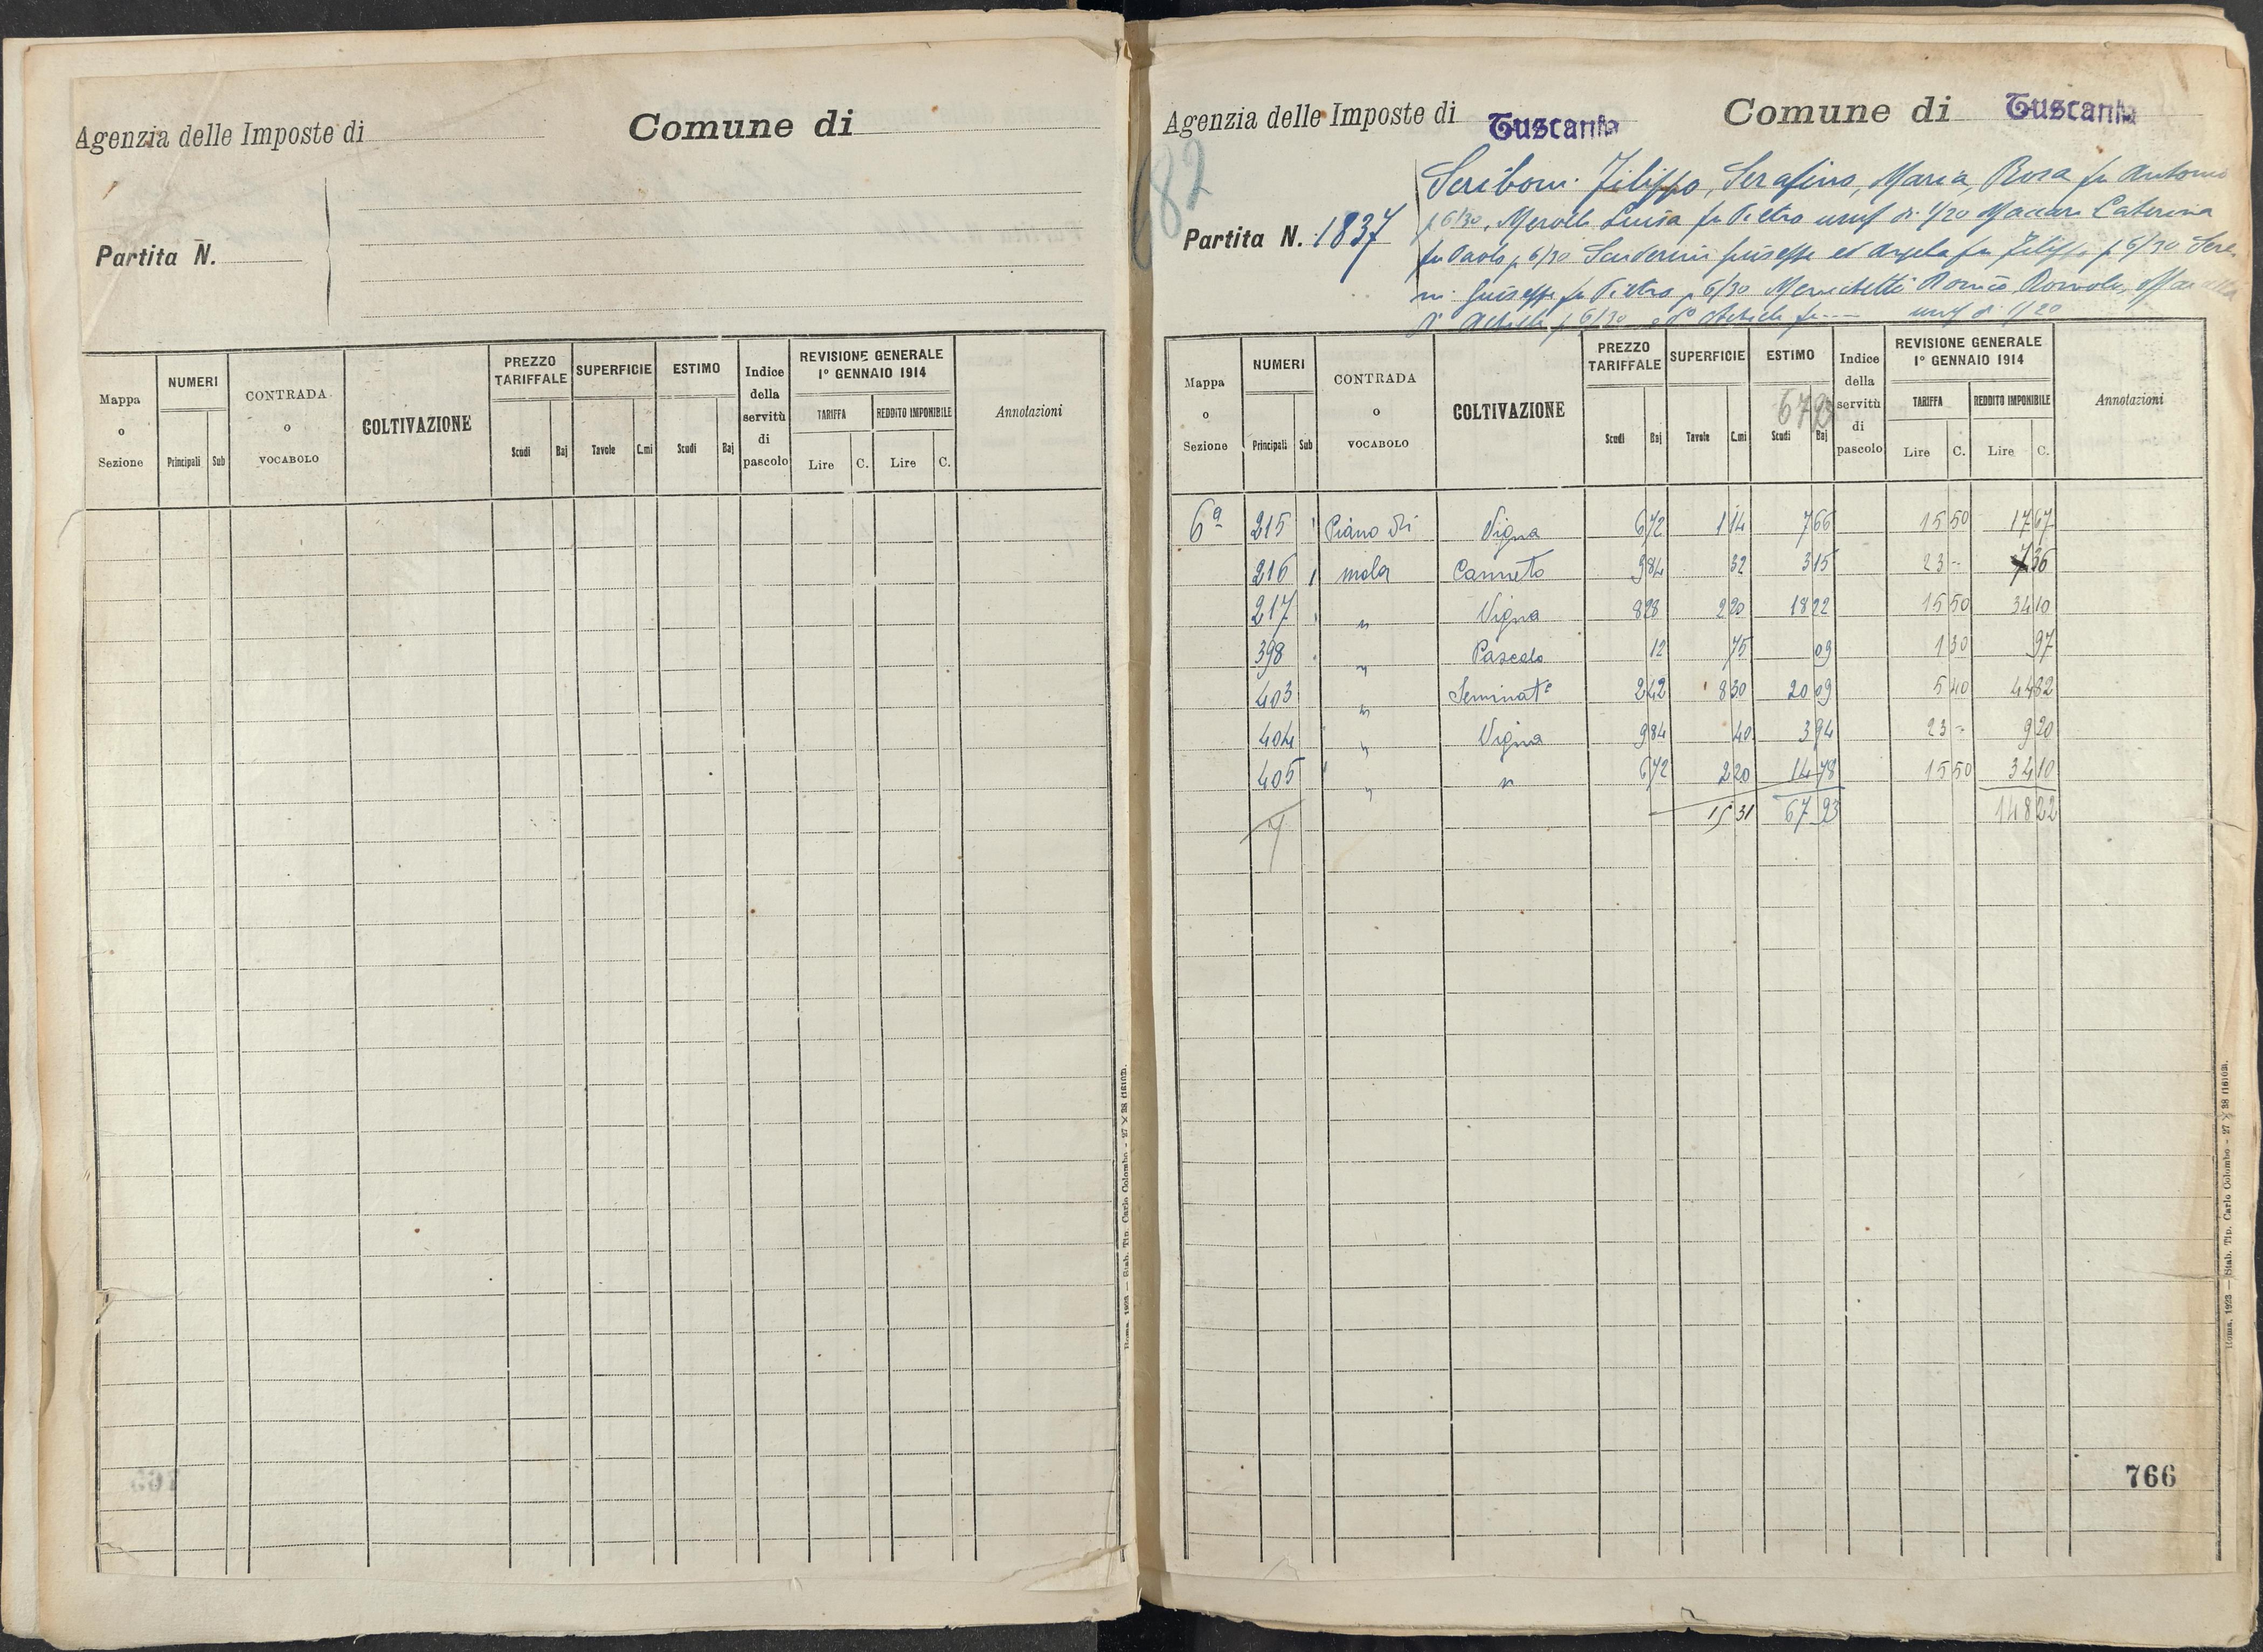 Agenzia delle Imposte di
Comune di
Partita N.
Mappa o Sezione
NUMERI
Principali Sub
CONTRADA o VOCABOLO
COLTIVAZIONE
PREZZO TARIFFALE
Scudi Baj
SUPERFICIE
Tavole C.mi
ESTIMO
Scudi Baj
Indice della servitù di pascolo
REVISIONE GENERALE
1° GENNAIO 1914
TARIFFA REDDITO IMPONIBILE
Lire C. Lire C.
Annotazioni
Roma, 1923 — Stab. Tip. Carlo Colombo - 27 X 38 (16103).
Agenzia delle Imposte di Tuscania Comune di Tuscania
682
Partita N. 1837
Scriboni Filippo, Serafino, Maria, Rosa fu Antonio
p 6/30, Merolli Luisa fu Pietro usuf di 1/20 Maccari Caterina
fu Paolo p 6/30 Scuderini Giuseppe ed Angela fu Filippo p 6/30
Giuseppe fu Pietro p 6/30 Menichetti Romeo, Romolo,
Achille p 6/30 usuf di 1/20
Mappa o Sezione
NUMERI
Principali Sub
CONTRADA o VOCABOLO
COLTIVAZIONE
PREZZO TARIFFALE
Scudi Baj
SUPERFICIE
Tavole C.mi
ESTIMO
6793
Scudi Baj
Indice della servitù di pascolo
REVISIONE GENERALE
1° GENNAIO 1914
TARIFFA REDDITO IMPONIBILE
Lire C. Lire C.
Annotazioni
6ª 215 Piano di Vigna 6 72 1 14 7 66 15 50 17 67
216 mola Canneto 9 84 32 3 15 23 - 7 36
217 " Vigna 8 28 2 20 18 22 15 50 34 10
398 " Pascolo 12 75 09 1 30 97
403 " Seminatº 2 42 8 30 20 09 5 40 44 82
404 " Vigna 9 84 40 3 94 23 - 9 20
405 " " 6 72 2 20 14 78 15 50 34 10
7 15 31 67 93 148 22
766
Roma, 1923 — Stab. Tip. Carlo Colombo - 27 X 38 (16103).